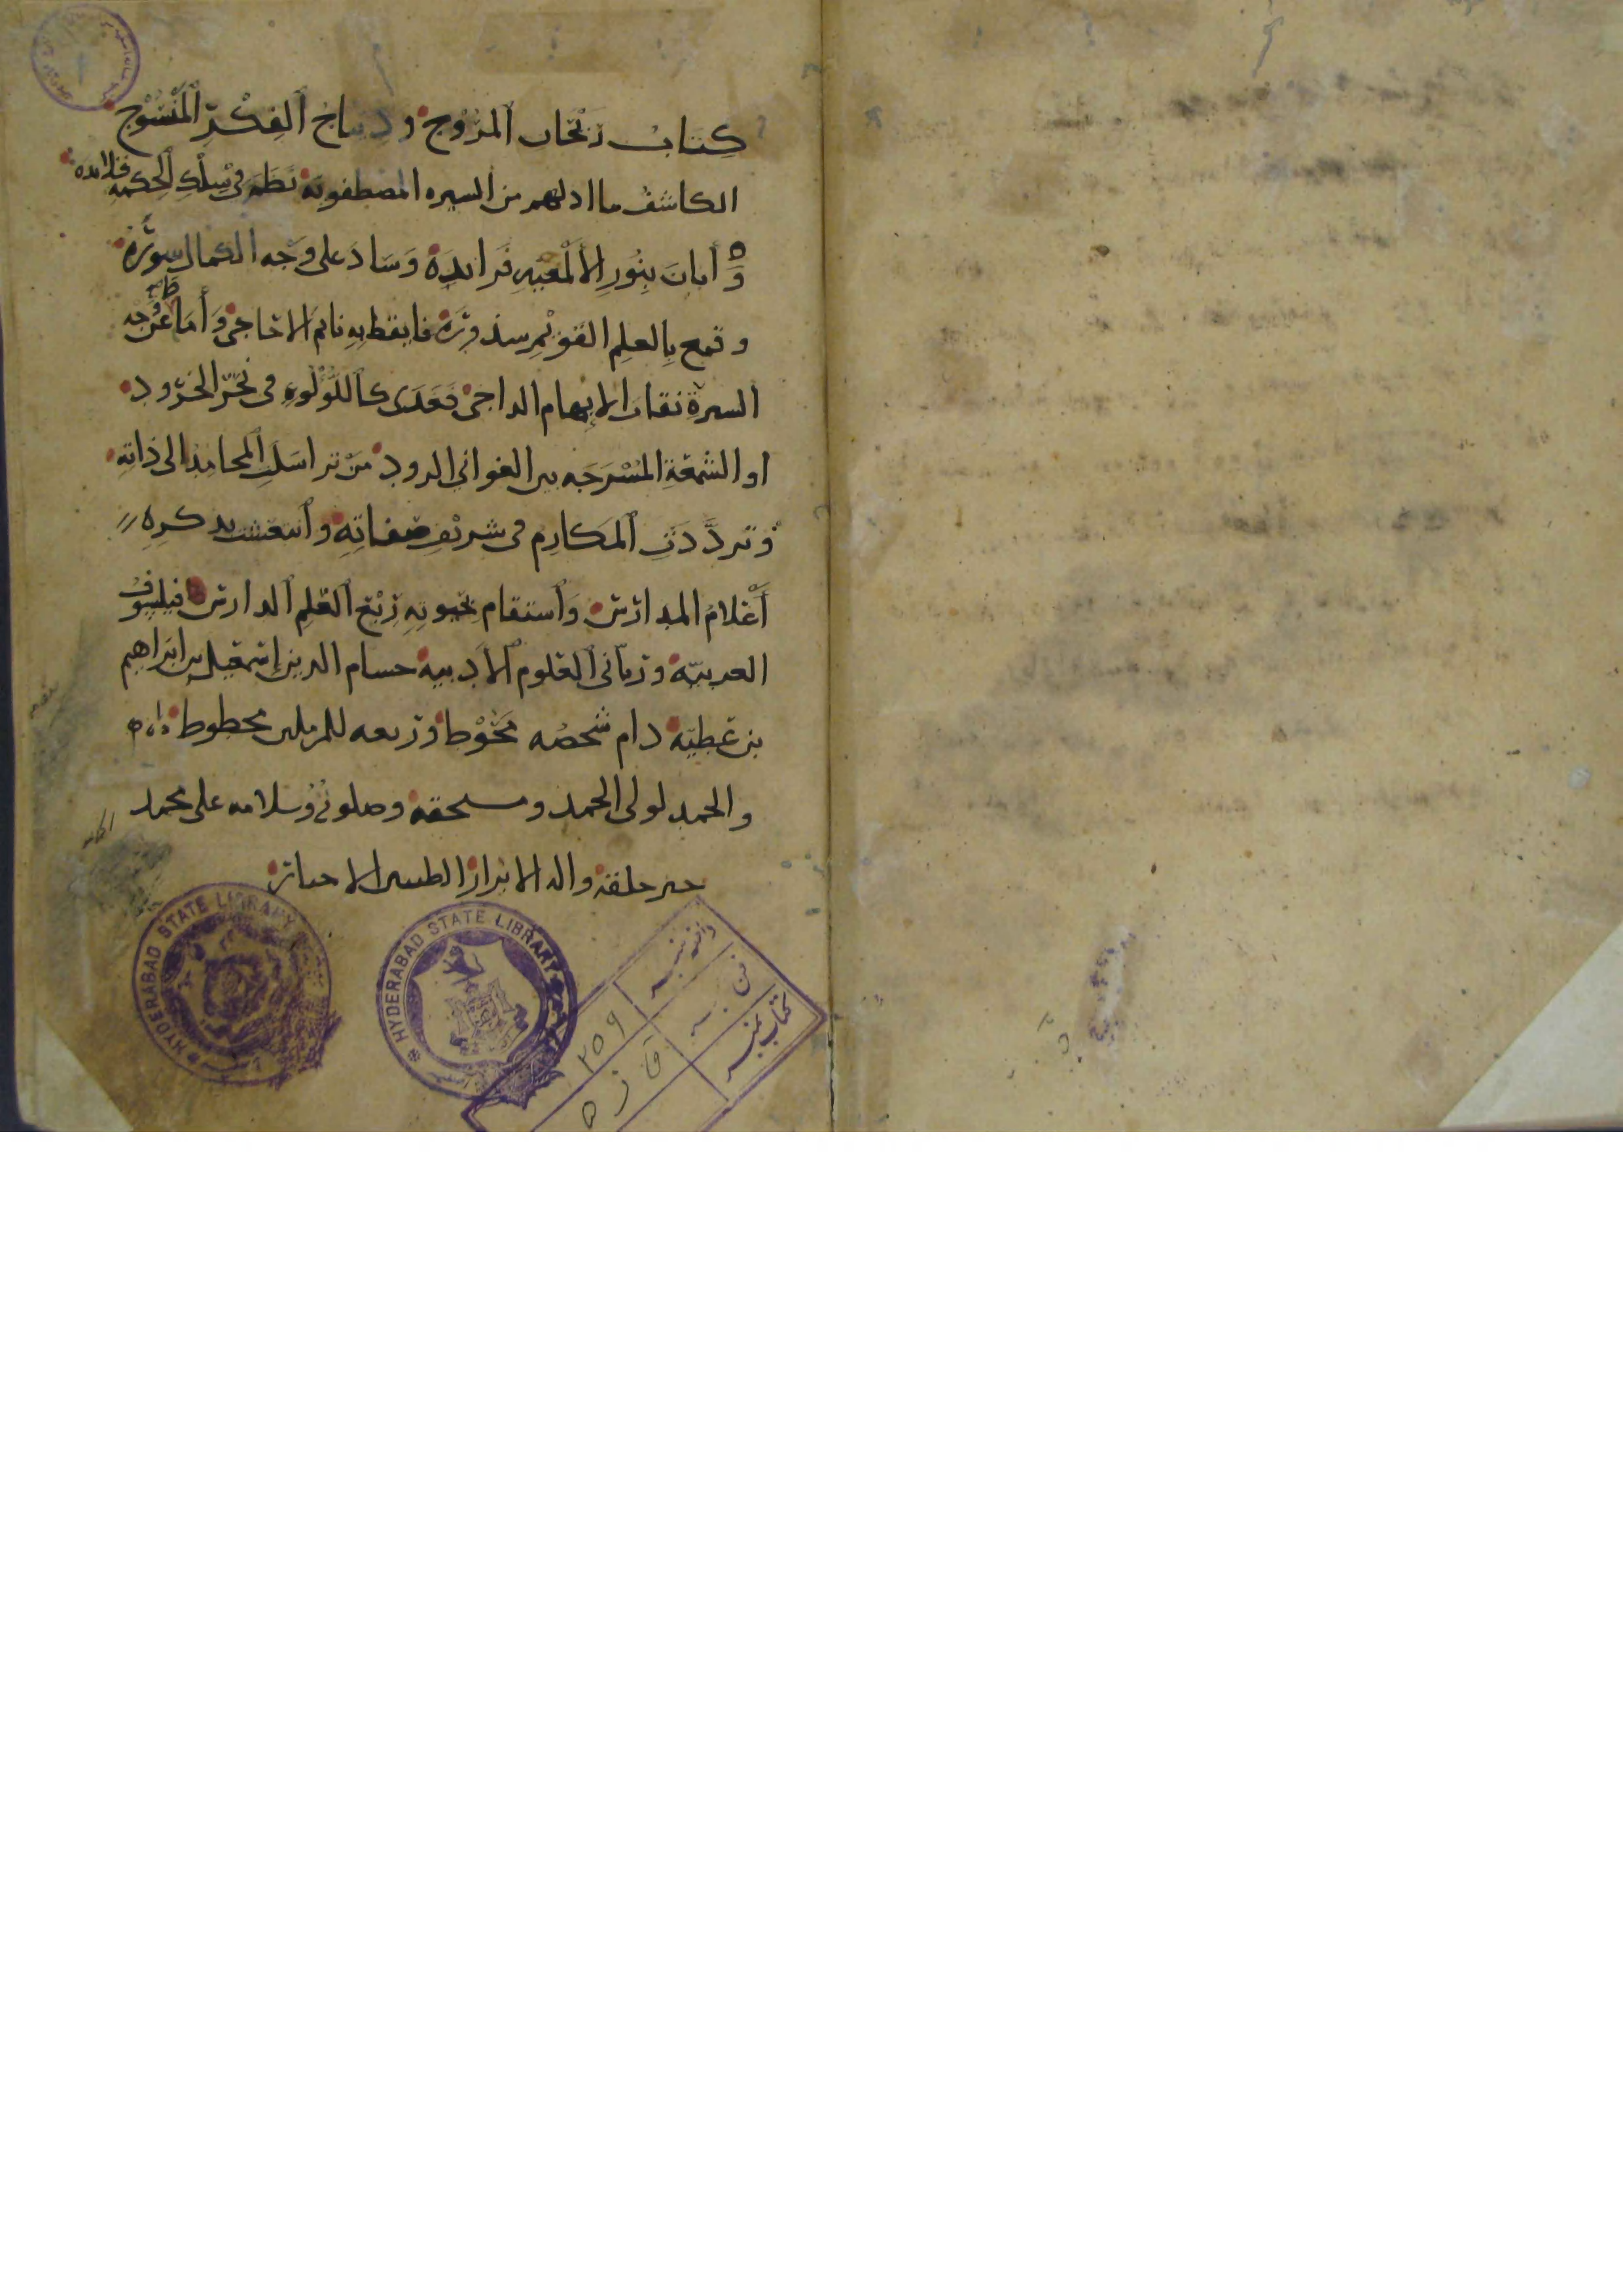 كتاب ريحان المروج وديباج الفكر المنسوج
الكاشف ما ادلهم من السيره المصطفويه نظم في سلك الحكمه قلائده
وَأبان بِنُورِ الألمعيه فرائده وساد على وجه الكمال
وقمع بالعلم القويم فايقظ به نائم الاحاجي وأماط عن وجه
السيرة نقاب الابهام الداجي فغدى كاللؤلؤه في نحر الخرود
او الشمعة المسرجه بين الغواني الرود من تراسلت المحامد الى ذاته
وتردَّدَتِ المكارم في شريف صفاته وانتعشت بذكره
أعلام المدارس واستقام به ربع العلم الدارس فيلسوف
العربيّه ورباني العلوم الأدبيه حسام الدين إسمعيل بن ابراهيم
بن عطيّه دام شخصه محوطا وربعه للمرملين محطوطا
والحمد لولي الحمد ومستحقه وصلوته وسلامه على محمد
خير خلقه واله الابرار الطيبين الاخيار
HYDERABAD STATE LIBRARY
HYDERABAD STATE LIBRARY
داخله نمبر
٢٥٩
فن
كتاب نمبر